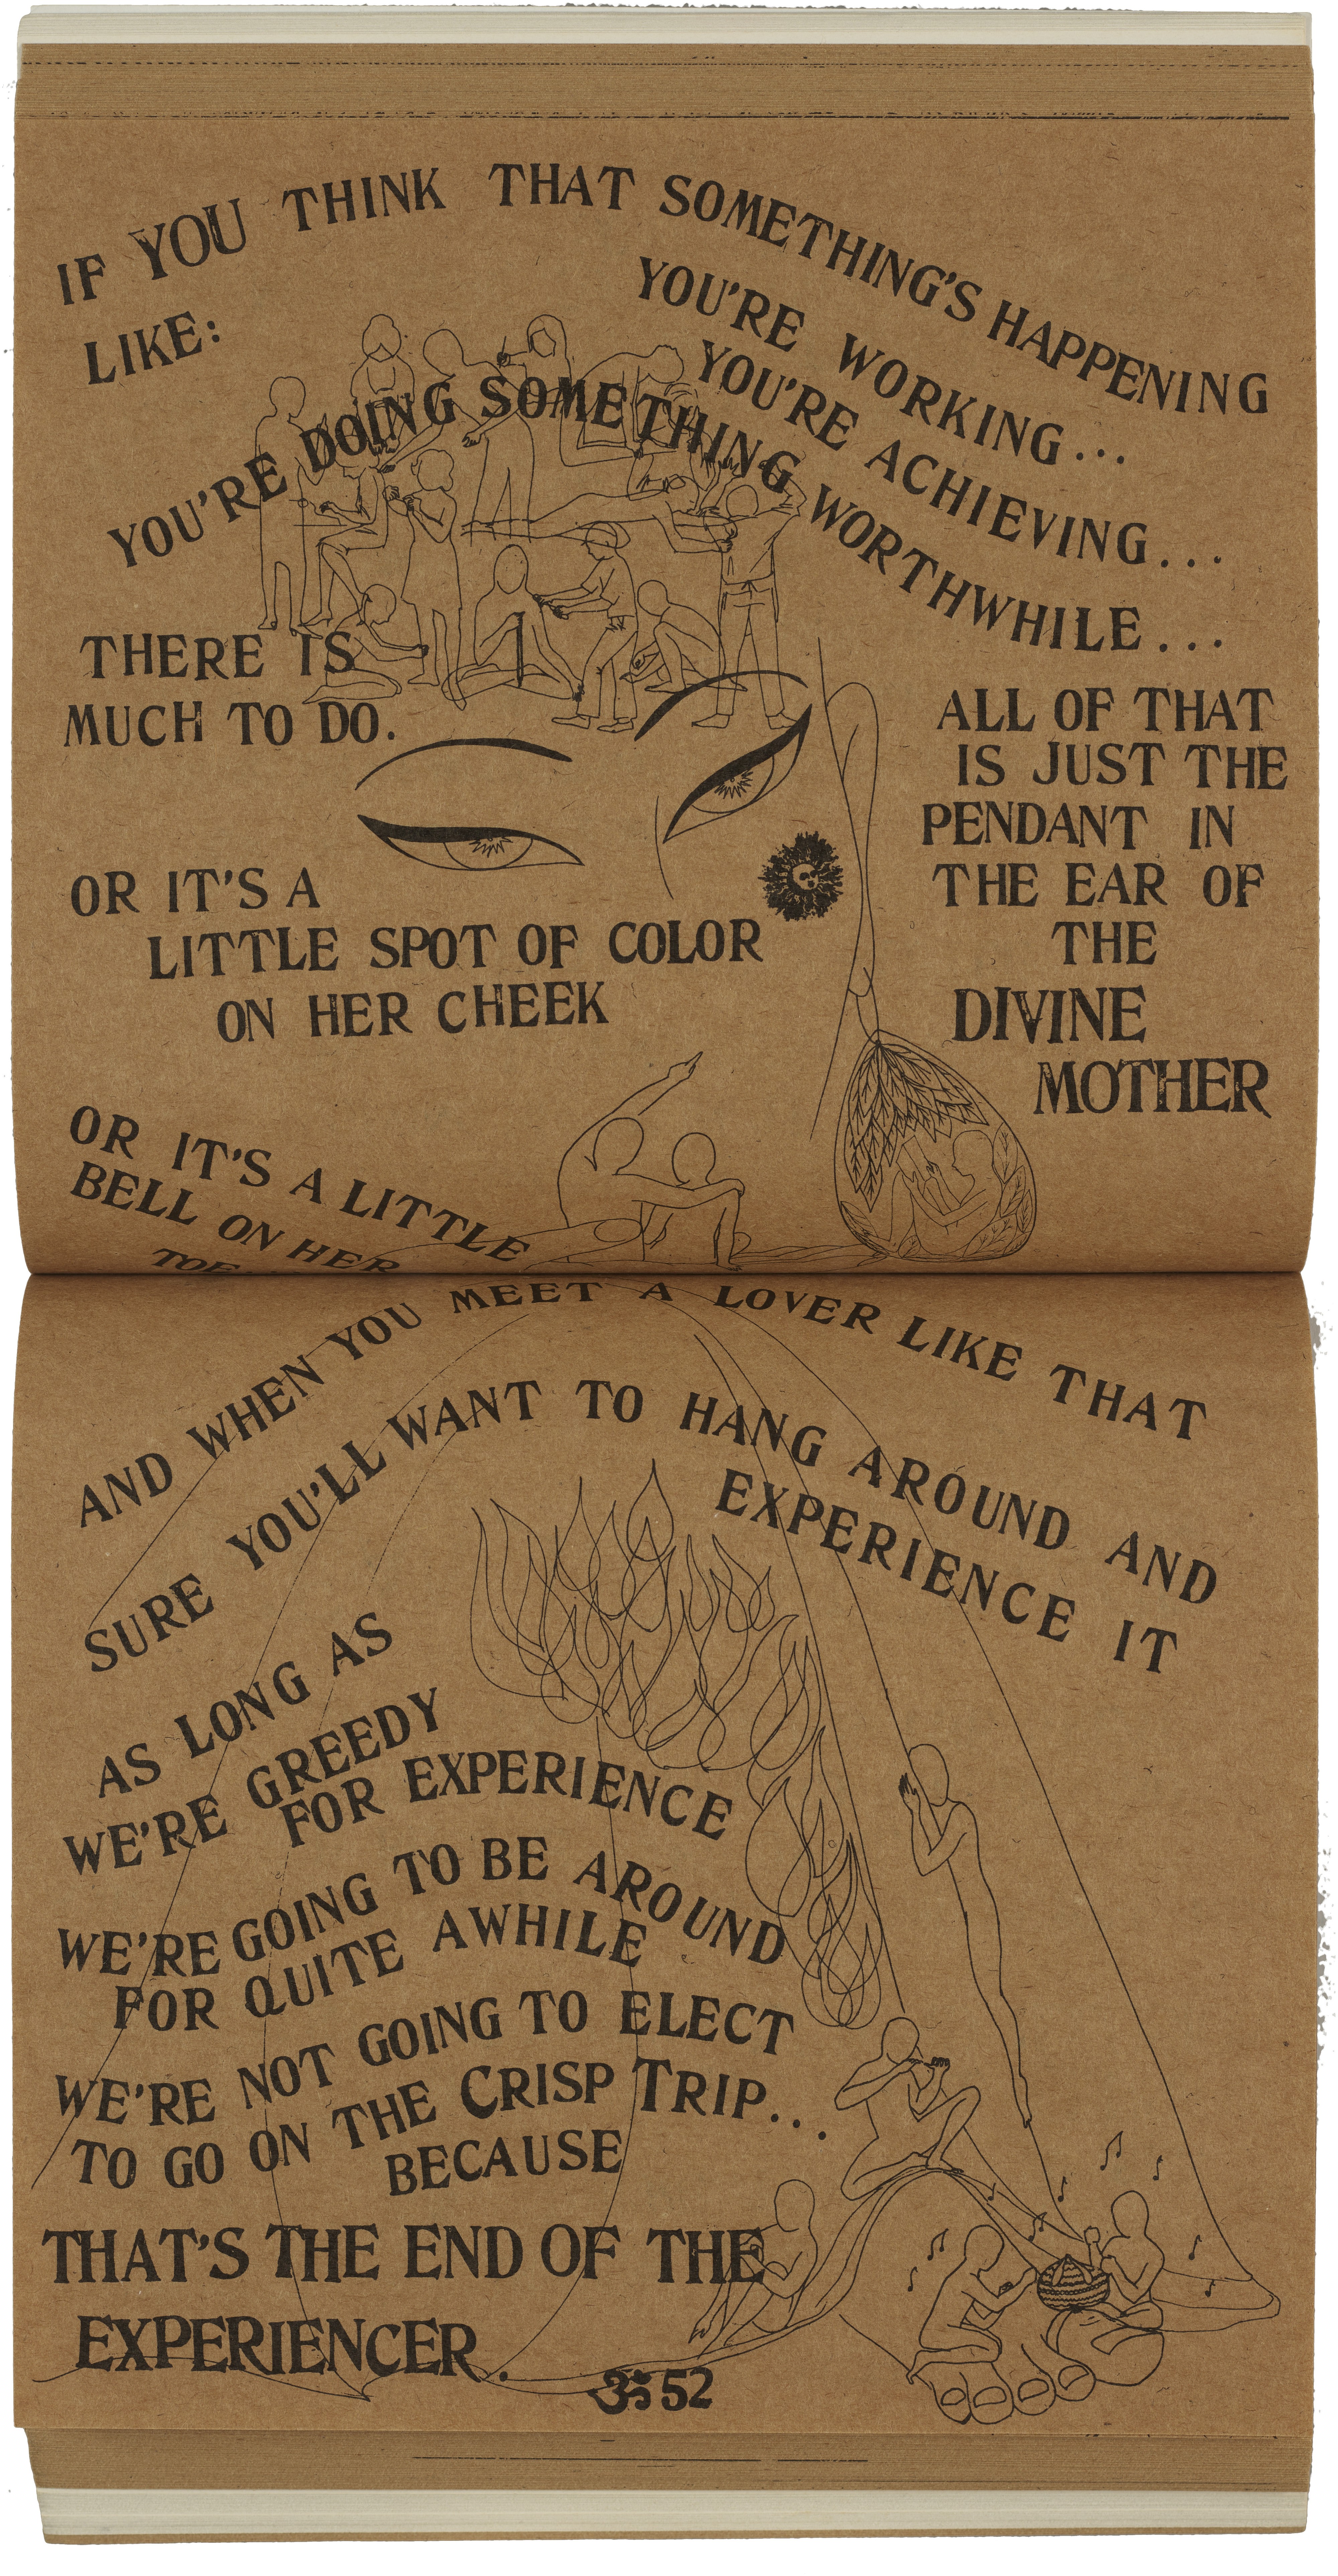 IF YOU THINK THAT SOMETHING'S HAPPENING
LIKE:
YOU'RE WORKING...
YOU'RE ACHIEVING...
YOU'RE DOING SOMETHING WORTHWHILE...
THERE IS
MUCH TO DO.
ALL OF THAT
IS JUST THE
PENDANT IN
THE EAR OF
THE
DIVINE
MOTHER
OR IT'S A
LITTLE SPOT OF COLOR
ON HER CHEEK
OR IT'S A LITTLE
BELL ON HER
TOE
AND WHEN YOU MEET A LOVER LIKE THAT
SURE YOU'LL WANT TO HANG AROUND AND
EXPERIENCE IT
AS LONG AS
WE'RE GREEDY
FOR EXPERIENCE
WE'RE GOING TO BE AROUND
FOR QUITE AWHILE
WE'RE NOT GOING TO ELECT
TO GO ON THE CRISP TRIP..
BECAUSE
THAT'S THE END OF THE
EXPERIENCER.
ॐ 52